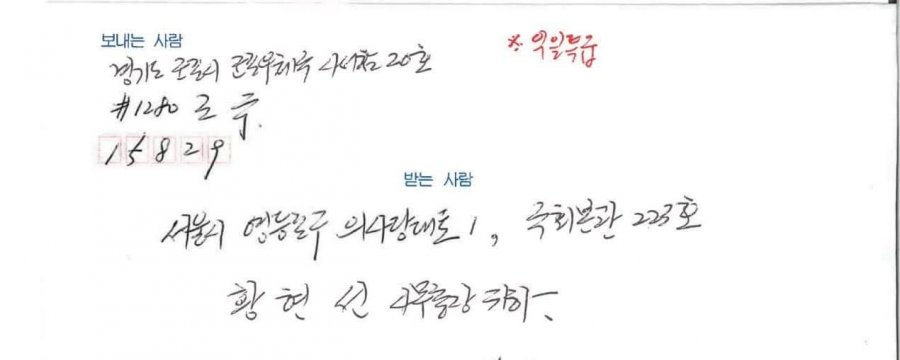 보내는 사람
※ 익일특급
경기도 군포시 군포우체국 사서함 20호
#1280 조 국.
15829
받는 사람
서울시 영등포구 의사당대로 1, 국회본관 223호
황 현 선 사무총장 귀하